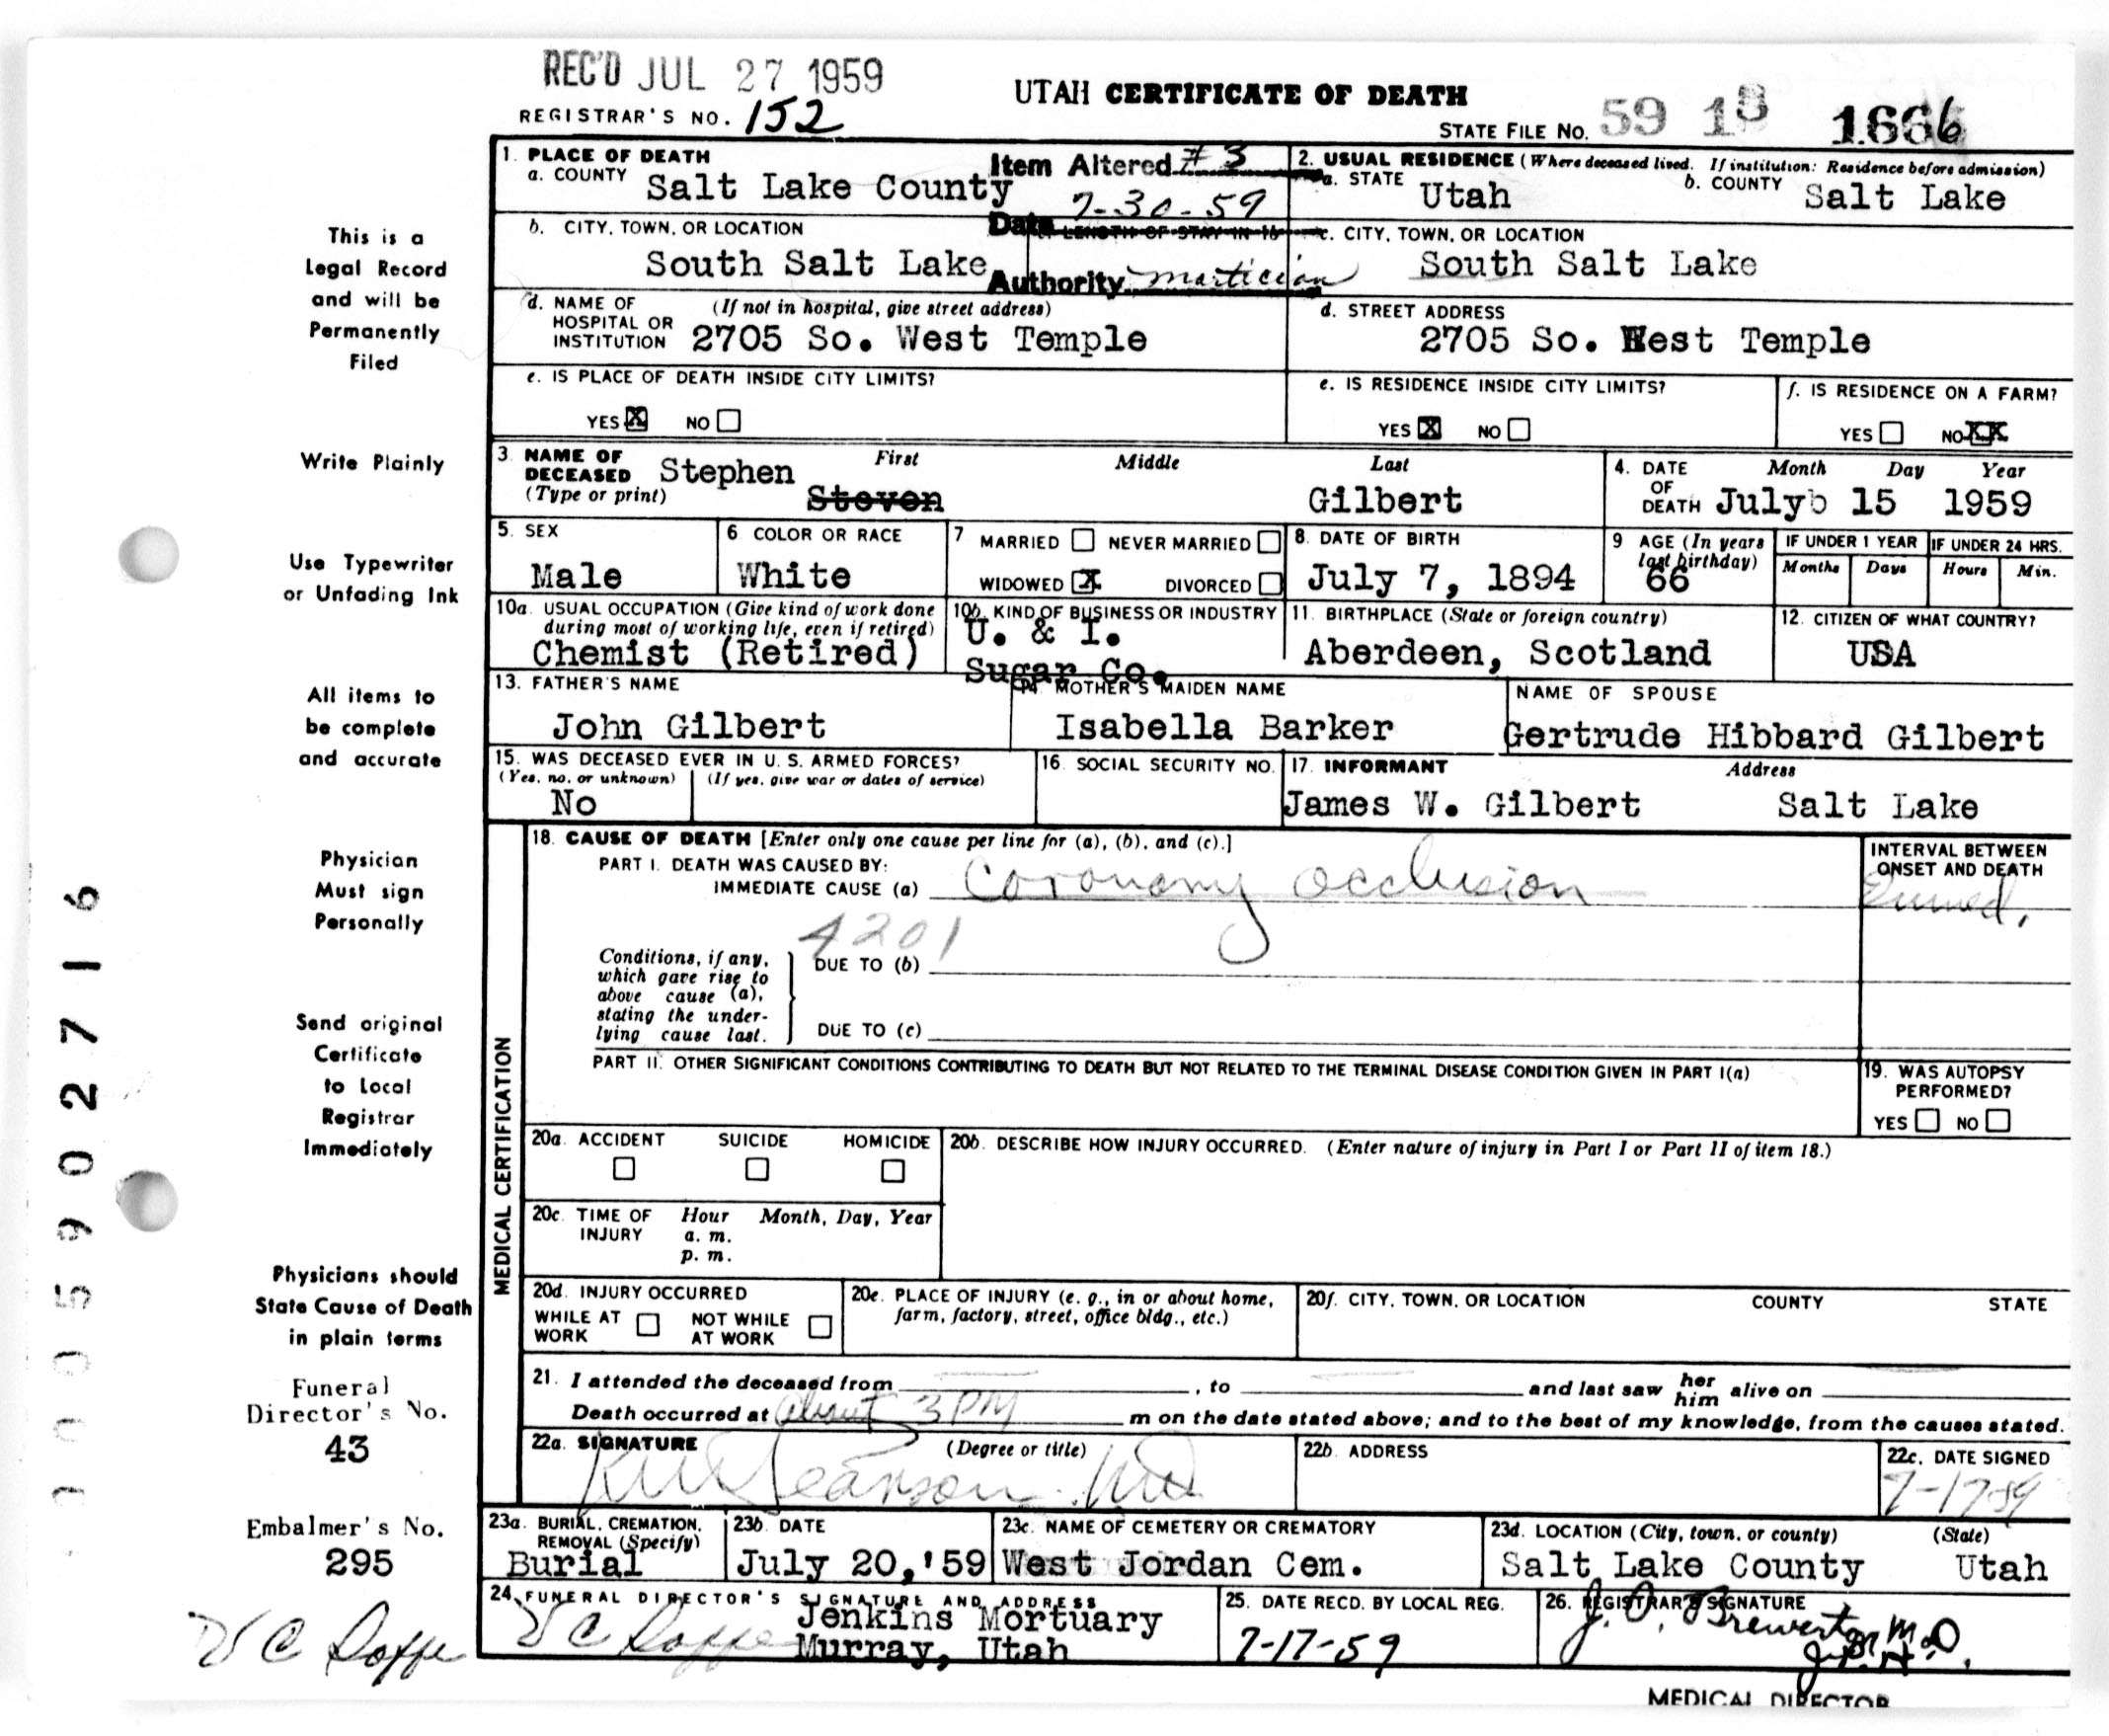 REC'D JUL 27 1959
UTAH CERTIFICATE OF DEATH
REGISTRAR'S NO. 152
STATE FILE No. 59 18 1666
1. PLACE OF DEATH
a. COUNTY Salt Lake County
Item Altered #3
Date 7-30-59
Authority mortician
2. USUAL RESIDENCE (Where deceased lived. If institution: Residence before admission)
a. STATE Utah
b. COUNTY Salt Lake
b. CITY, TOWN, OR LOCATION
South Salt Lake
c. LENGTH OF STAY IN 1b
c. CITY, TOWN, OR LOCATION
South Salt Lake
d. NAME OF HOSPITAL OR INSTITUTION (If not in hospital, give street address)
2705 So. West Temple
d. STREET ADDRESS
2705 So. West Temple
e. IS PLACE OF DEATH INSIDE CITY LIMITS?
YES X NO
e. IS RESIDENCE INSIDE CITY LIMITS?
YES X NO
f. IS RESIDENCE ON A FARM?
YES NO XX
3. NAME OF DECEASED (Type or print)
First Middle Last
Stephen
Steven Gilbert
4. DATE OF DEATH Month Day Year
July 15 1959
5. SEX
Male
6 COLOR OR RACE
White
7 MARRIED NEVER MARRIED
WIDOWED X DIVORCED
8. DATE OF BIRTH
July 7, 1894
9 AGE (In years last birthday)
66
IF UNDER 1 YEAR
Months Days
IF UNDER 24 HRS.
Hours Min.
10a. USUAL OCCUPATION (Give kind of work done during most of working life, even if retired)
Chemist (Retired)
10b. KIND OF BUSINESS OR INDUSTRY
U. & I.
Sugar Co.
11. BIRTHPLACE (State or foreign country)
Aberdeen, Scotland
12. CITIZEN OF WHAT COUNTRY?
USA
13. FATHER'S NAME
John Gilbert
14. MOTHER'S MAIDEN NAME
Isabella Barker
NAME OF SPOUSE
Gertrude Hibbard Gilbert
15. WAS DECEASED EVER IN U. S. ARMED FORCES?
(Yes, no, or unknown) (If yes, give war or dates of service)
No
16. SOCIAL SECURITY NO.
17. INFORMANT Address
James W. Gilbert Salt Lake
MEDICAL CERTIFICATION
18. CAUSE OF DEATH [Enter only one cause per line for (a), (b), and (c).]
PART I. DEATH WAS CAUSED BY:
IMMEDIATE CAUSE (a) Coronary occlusion
INTERVAL BETWEEN ONSET AND DEATH
Immed.
4201
Conditions, if any, which gave rise to above cause (a), stating the underlying cause last.
DUE TO (b)
DUE TO (c)
PART II. OTHER SIGNIFICANT CONDITIONS CONTRIBUTING TO DEATH BUT NOT RELATED TO THE TERMINAL DISEASE CONDITION GIVEN IN PART I(a)
19. WAS AUTOPSY PERFORMED?
YES NO
20a. ACCIDENT SUICIDE HOMICIDE
20b. DESCRIBE HOW INJURY OCCURRED. (Enter nature of injury in Part I or Part II of item 18.)
20c. TIME OF INJURY Hour Month, Day, Year
a. m.
p. m.
20d. INJURY OCCURRED
WHILE AT WORK NOT WHILE AT WORK
20e. PLACE OF INJURY (e. g., in or about home, farm, factory, street, office bldg., etc.)
20f. CITY, TOWN, OR LOCATION COUNTY STATE
21. I attended the deceased from , to and last saw her him alive on
Death occurred at about 3 PM m on the date stated above; and to the best of my knowledge, from the causes stated.
22a. SIGNATURE (Degree or title)
Pearson MD
22b. ADDRESS
22c. DATE SIGNED
7-17-59
23a. BURIAL, CREMATION, REMOVAL (Specify)
Burial
23b. DATE
July 20,'59
23c. NAME OF CEMETERY OR CREMATORY
West Jordan Cem.
23d. LOCATION (City, town, or county) (State)
Salt Lake County Utah
24. FUNERAL DIRECTOR'S SIGNATURE AND ADDRESS
Jenkins Mortuary
Murray, Utah
25. DATE RECD. BY LOCAL REG.
7-17-59
26. REGISTRAR'S SIGNATURE
J. O. Brewerton M.D.
MEDICAL DIRECTOR
This is a
Legal Record
and will be
Permanently
Filed
Write Plainly
Use Typewriter
or Unfading Ink
All items to
be complete
and accurate
Physician
Must sign
Personally
Send original
Certificate
to Local
Registrar
Immediately
Physicians should
State Cause of Death
in plain terms
Funeral
Director's No.
43
Embalmer's No.
295
5902716